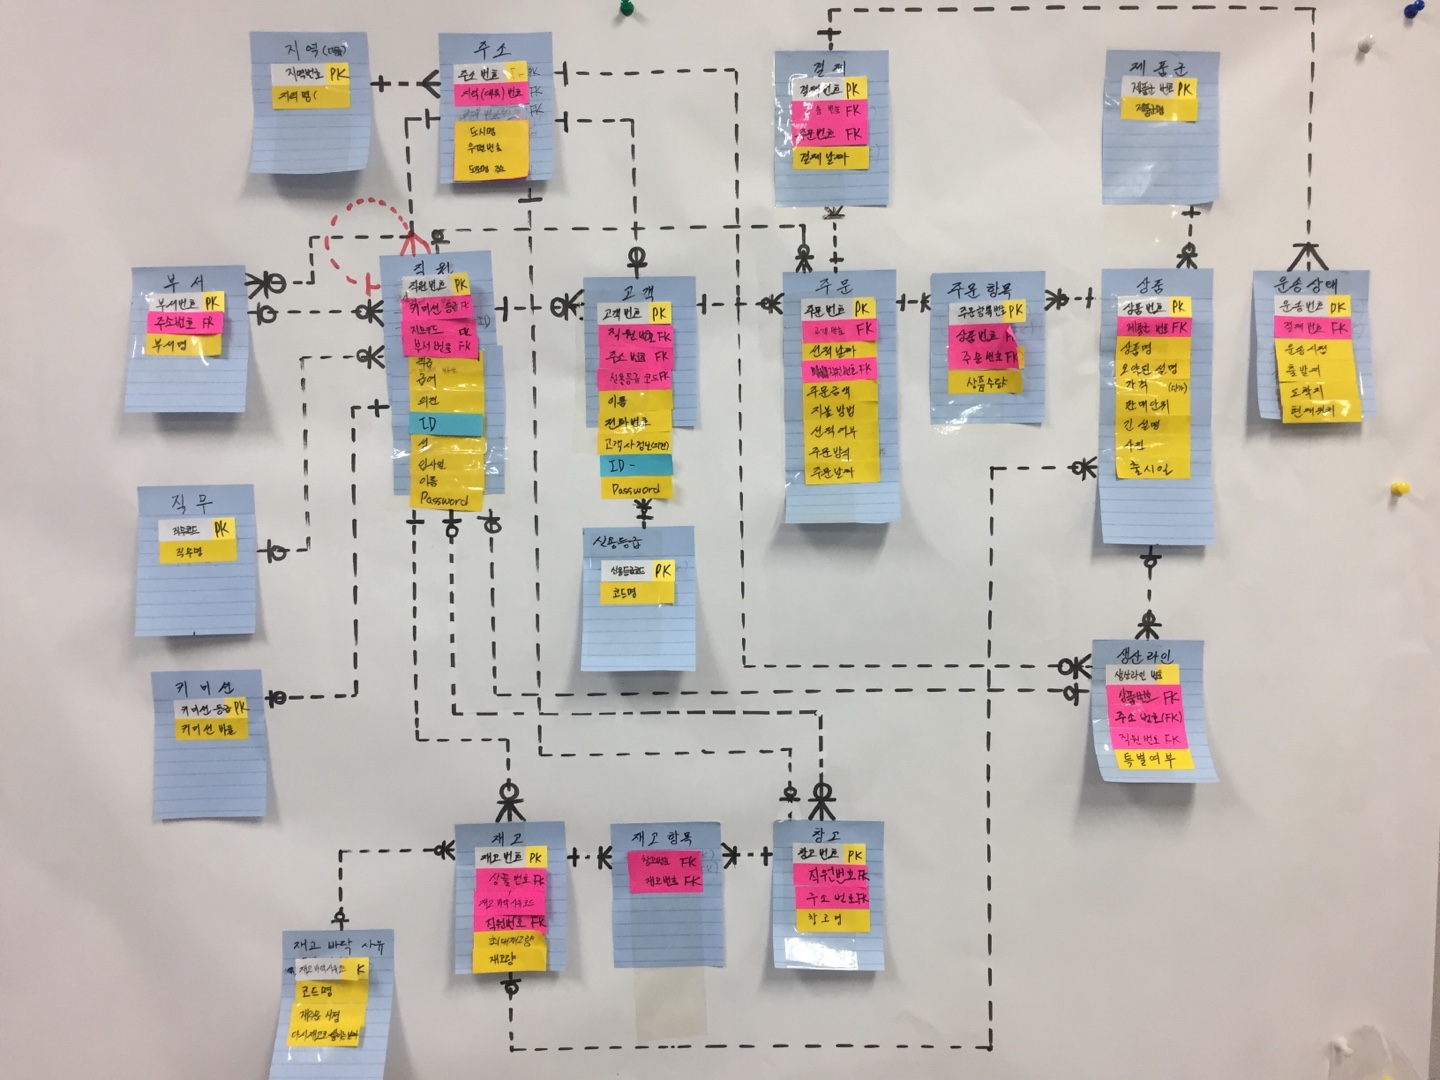 지역(대륙)
지역번호 PK
지역명(
주소
주소 번호 PK
지역(대륙) 번호 FK
FK
도시명
우편번호
도로명 주소
결제
결제 번호 PK
번호 FK
주문번호 FK
결제 날짜
제품군
제품군 번호 PK
제품군명
부서
부서번호 PK
주소번호 FK
부서명
직원
직원번호 PK
커미션 등급 FK
직무코드 FK
부서 번호 FK
직급
급여
의견
ID
성
입사일
이름
Password
고객
고객 번호 PK
직원 번호 FK
주소 번호 FK
신용등급 코드 FK
이름
전화번호
고객사 정보(의견)
ID -
Password
주문
주문 번호 PK
고객 번호 FK
선적 날짜
직원 번호 FK
주문 금액
지불 방법
선적 여부
주문 방식
주문 날짜
주문 항목
주문항목 번호 PK
상품 번호 FK
주문 번호 FK
상품수량
상품
상품 번호 PK
제품군 번호 FK
상품명
요약된 설명
가격
판매단위
긴 설명
사진
출시일
운송 상태
운송번호 PK
결제 번호 FK
운송 시점
출발지
도착지
현재위치
직무
직무코드 PK
직무명
신용등급
신용등급코드 PK
코드명
커미션
커미션 등급 PK
커미션 비율
생산 라인
생산라인 번호
상품번호 FK
주소 번호(FK)
직원 번호 FK
특별여부
재고
재고 번호 PK
상품 번호 FK
재고 바닥 사유코드
직원번호 FK
최대재고량
재고량
재고 항목
창고번호 FK
재고번호 FK
창고
창고 번호 PK
직원번호 FK
주소 번호 FK
창고명
재고 바닥 사유
재고 바닥 사유코드 K
코드명
재주문 시점